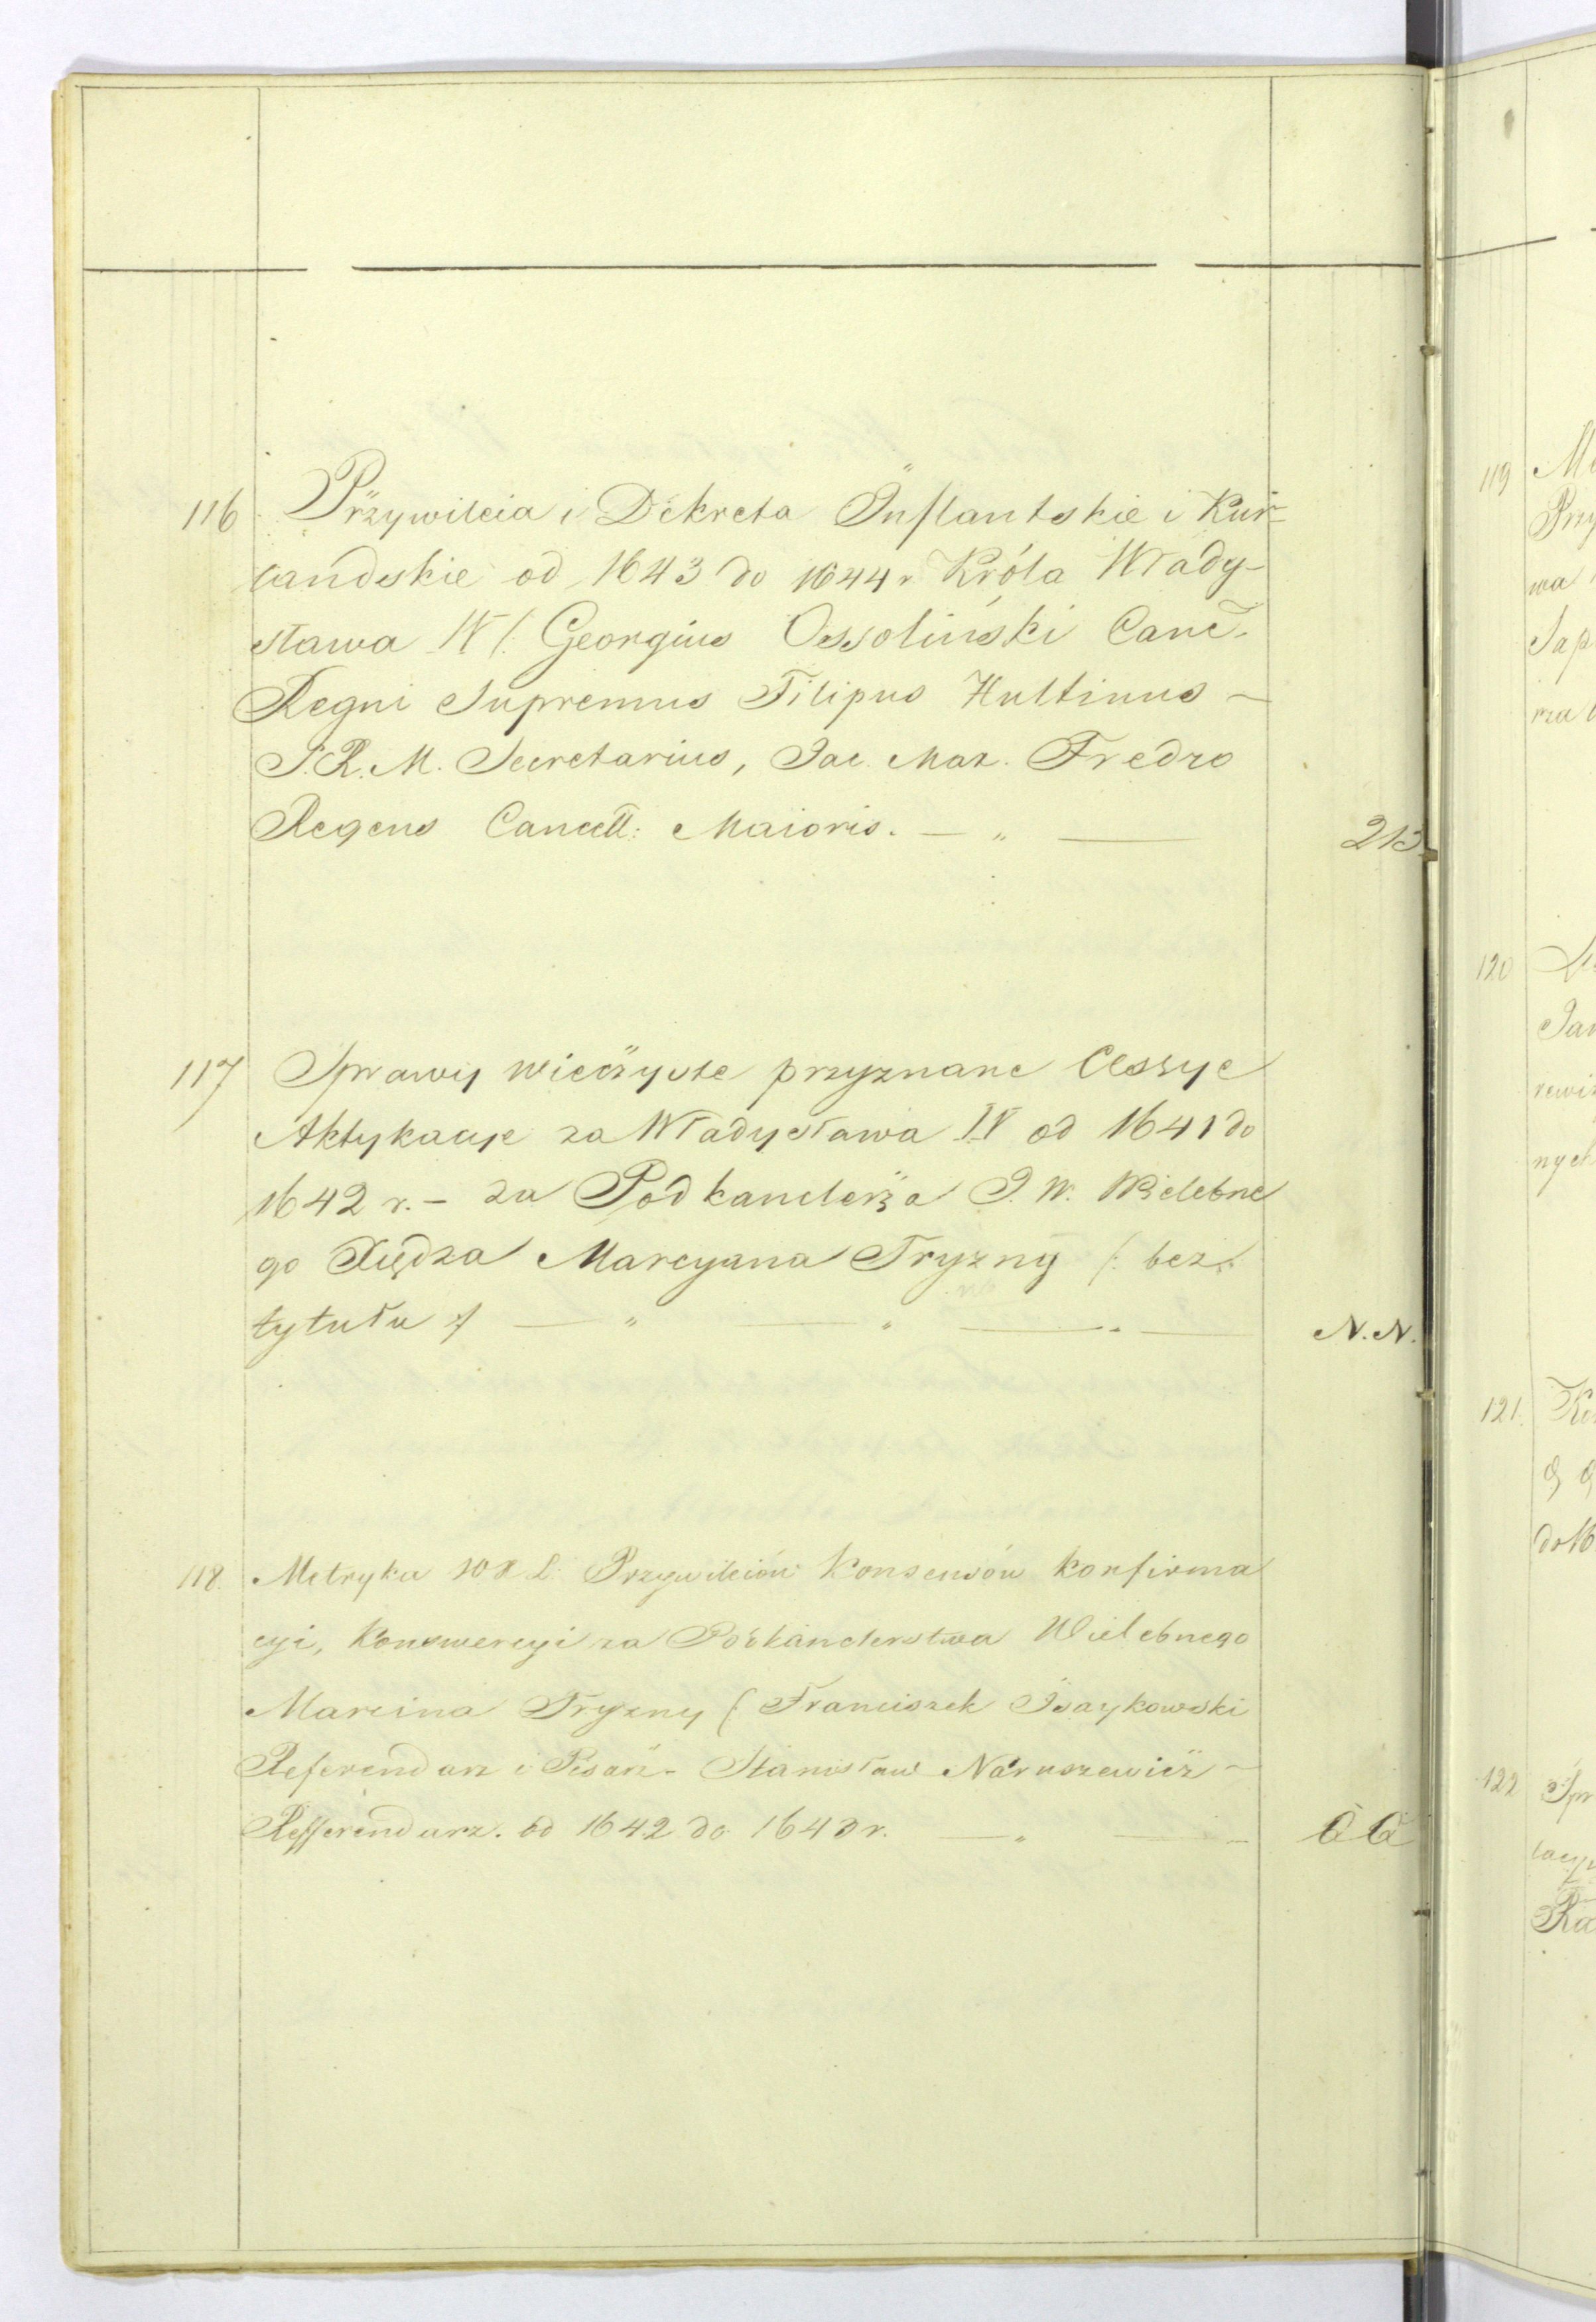 116 Przywileia i Dekreta Inflantskie i Kur-
landskie od 1643 do 1644 r. Króla Włady-
sława IV /: Georgius Ossoliński Canc.
Regni Supremus Filipus Hultinus –
S. R. M. Secretarius, Jac. Max. Fredro
Regens Cancell: Maioris. — „ — 213
117 Sprawy wieczyste przyznane Cessye
Aktykacye za Władysława IV od 1641 do
1642 r. – za Podkanclerza J. W. Wielebne
go Xiędza Marcyana Tryzny /: bez
tytułu :/ — „ — „ — N. N.
118. Metryka W X L: Przywileiów Konsensów Konfirma
cyi, Konwercyi za Podkanclerstwa Wielebnego
Marcina Tryzny /: Franciszek Isaykowski
Referendarz i Pisarz – Stanisław Naruszewicz –
Refferendarz. od 1642 do 1643 r. — „ —
119
120
121.
122